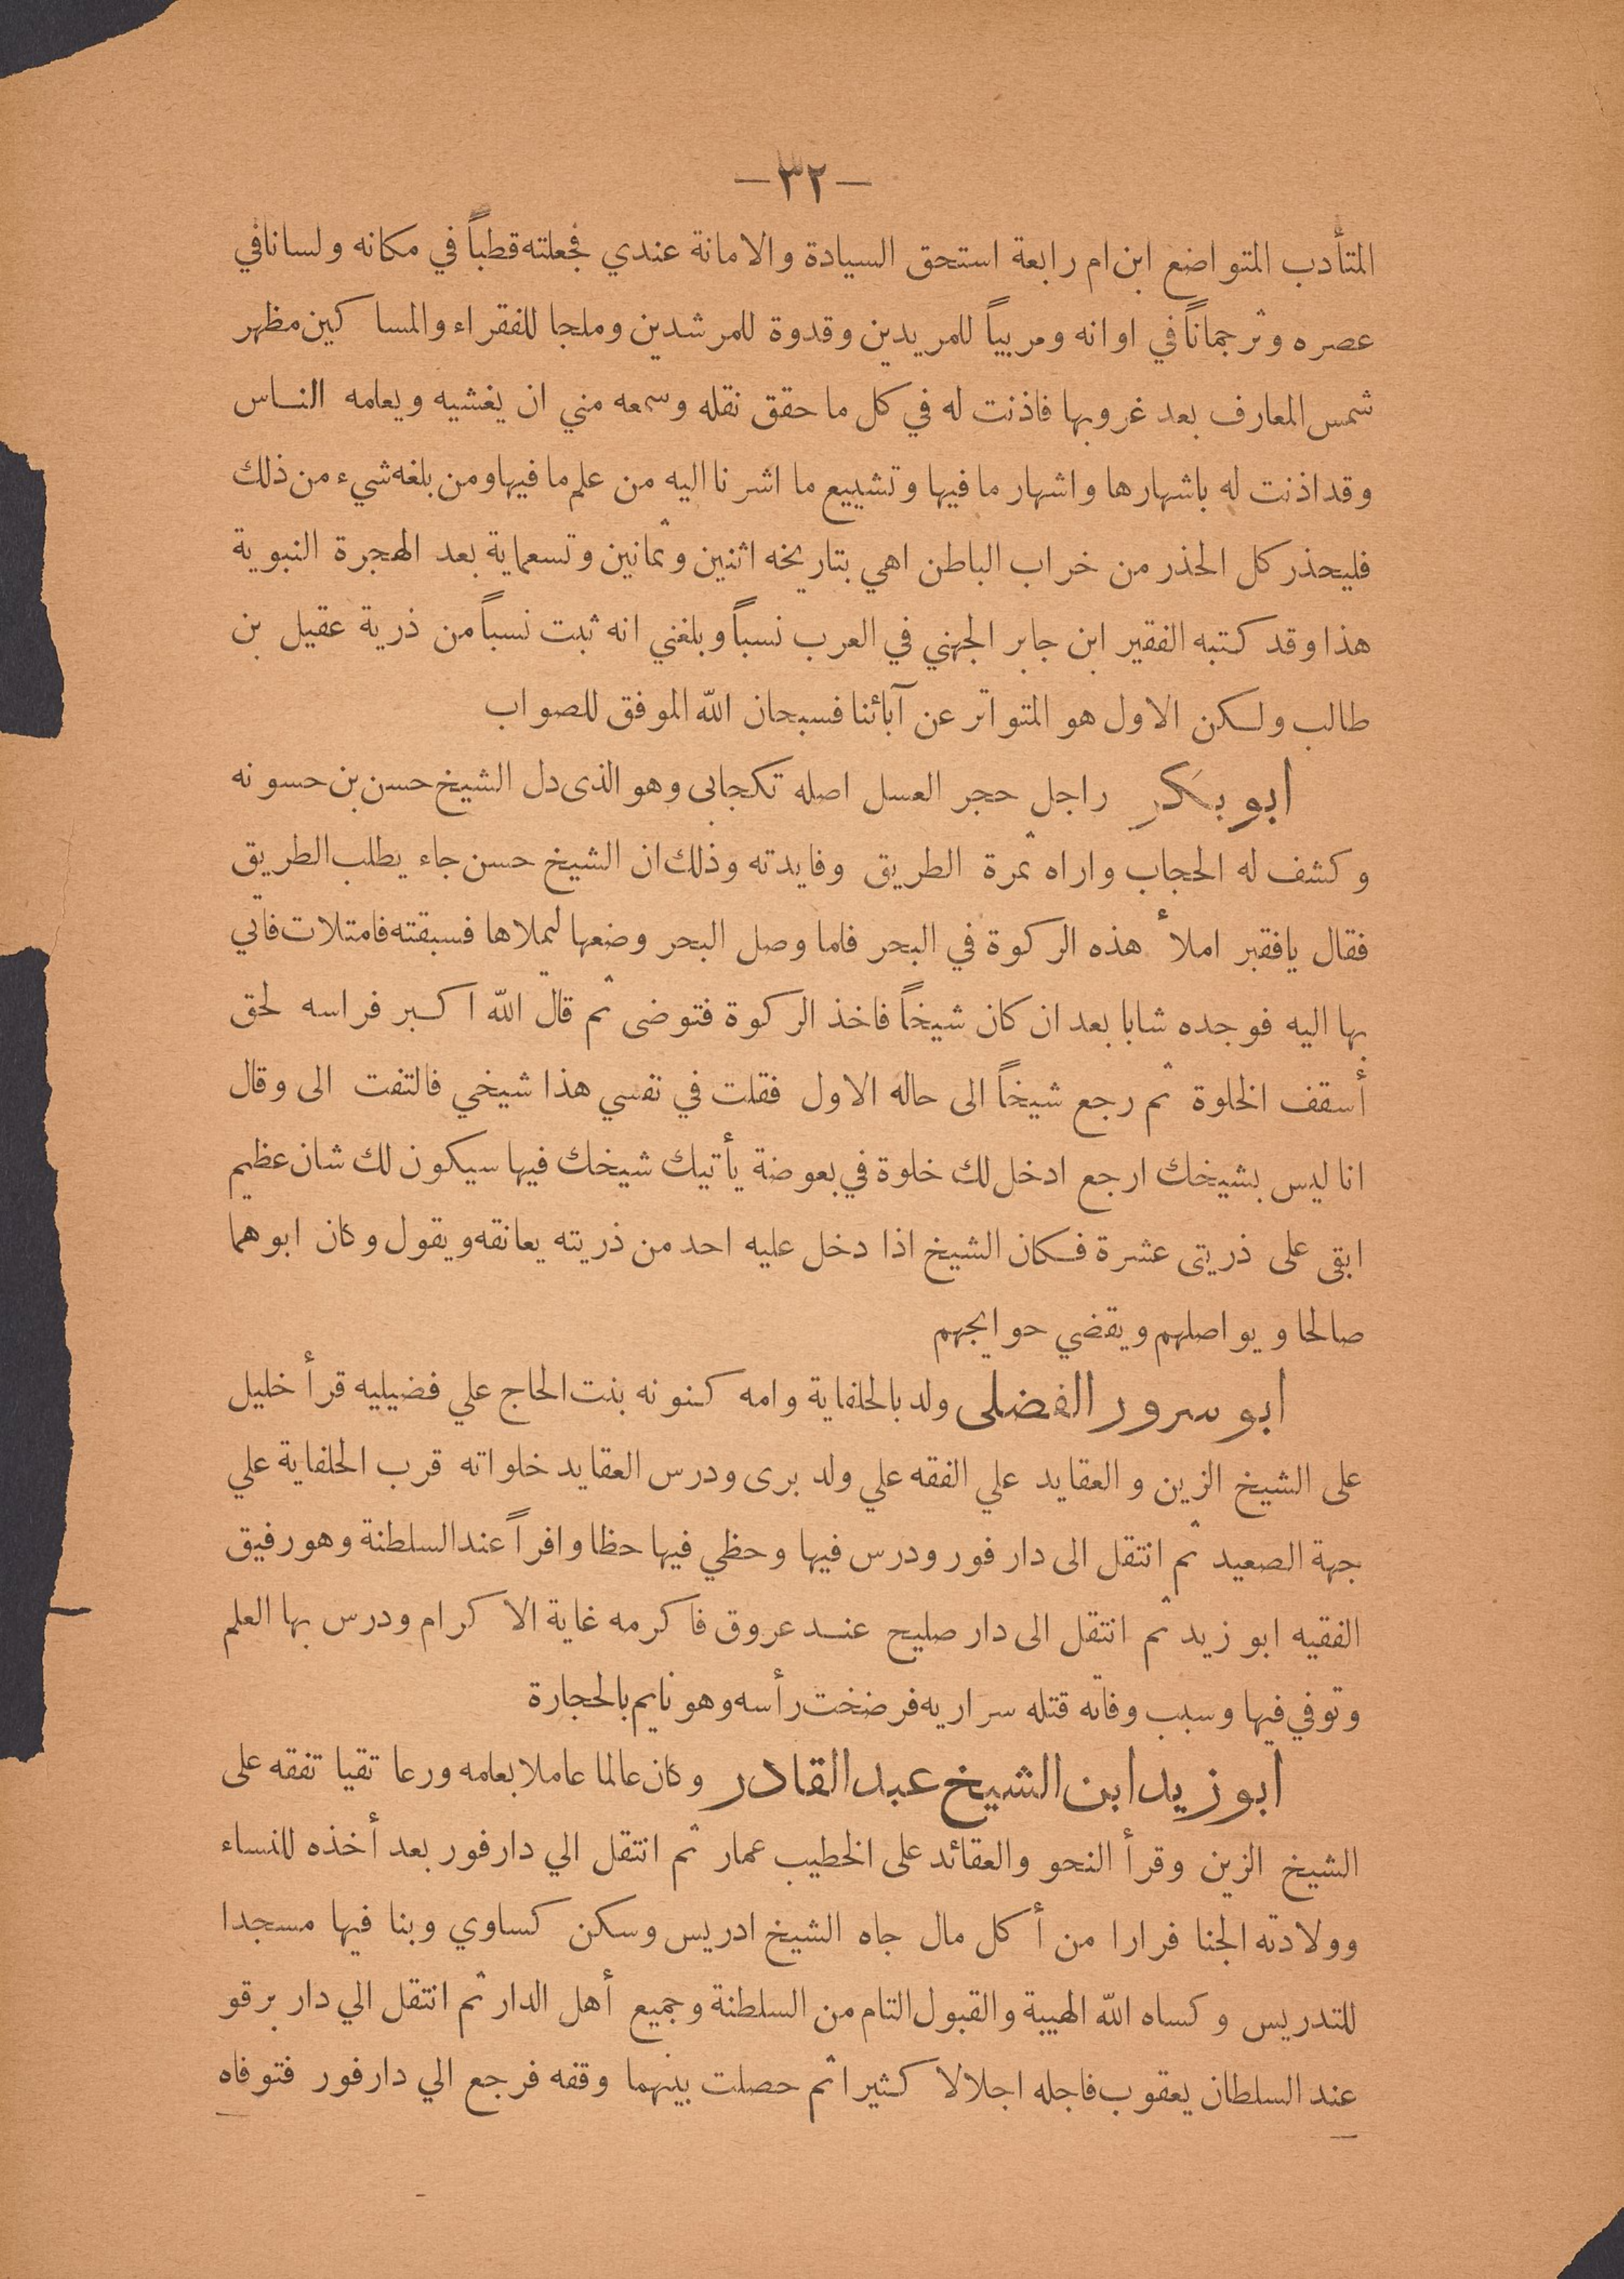 — ٣٢ —
المتأدب المتواضع ابن ام رابعة استحق السيادة والامانة عندي فجعلته قطباً في مكانه ولسانا في
عصره وترجماناً في اوانه ومربياً للمريدين وقدوة للمرشدين وملجا للفقراء والمساكين مظهر
شمس المعارف بعد غروبها فاذنت له في كل ما حقق نقله وسمعه مني ان يغشيه ويعامه الناس
وقد اذنت له باشهارها واشهار ما فيها وتشييع ما اشرنا اليه من علم ما فيها ومن بلغه شيء من ذلك
فليحذر كل الحذر من خراب الباطن اهي بتاريخه اثنين وثمانين وتسعماية بعد الهجرة النبوية
هذا وقد كتبه الفقير ابن جابر الجهني في العرب نسباً وبلغني انه ثبت نسباً من ذرية عقيل بن
طالب ولكن الاول هو المتواتر عن آبائنا فسبحان الله الموفق للصواب
ابو بكر راجل حجر العسل اصله تكجابى وهو الذى دل الشيخ حسن بن حسونه
وكشف له الحجاب واراه ثمرة الطريق وفايدته وذلك ان الشيخ حسن جاء يطلب الطريق
فقال يافقير املأ هذه الركوة في البحر فاما وصل البحر وضعها ليملاها فسبقته فامتلات فاتي
بها اليه فوجده شابا بعد ان كان شيخاً فاخذ الركوة فتوضى ثم قال الله اكبر فراسه لحق
أسقف الخلوة ثم رجع شيخاً الى حاله الاول فقلت في نفسي هذا شيخي فالتفت الى وقال
انا ليس بشيخك ارجع ادخل لك خلوة في بعوضة يأتيك شيخك فيها سيكون لك شان عظيم
ابقى على ذريتى عشرة فكان الشيخ اذا دخل عليه احد من ذريته يعانقه ويقول وكان ابوهما
صالحا ويواصلهم ويقضي حوايجهم
ابو سرور الفضلى ولد بالحلفاية وامه كنونه بنت الحاج علي فضيليه قرأ خليل
على الشيخ الزين والعقايد علي الفقه علي ولد برى ودرس العقايد خلواته قرب الحلفاية علي
جهة الصعيد ثم انتقل الى دار فور ودرس فيها وحظي فيها حظا وافراً عند السلطنة وهو رفيق
الفقيه ابو زيد ثم انتقل الى دار صليح عند عروق فاكرمه غاية الاكرام ودرس بها العلم
وتوفي فيها وسبب وفاته قتله سراريه فرضخت رأسه وهو نايم بالحجارة
ابو زيد ابن الشيخ عبد القادر وكان عالما عاملا بعامه ورعا تقيا تفقه على
الشيخ الزين وقرأ النحو والعقائد على الخطيب عمار ثم انتقل الي دارفور بعد أخذه للنساء
وولادته الجنا فرارا من أكل مال جاه الشيخ ادريس وسكن كساوي وبنا فيها مسجدا
للتدريس وكساه الله الهيبة والقبول التام من السلطنة وجميع أهل الدار ثم انتقل الي دار برقو
عند السلطان يعقوب فاجله اجلالا كثيرا ثم حصلت بينهما وقفه فرجع الي دارفور فتوفاه